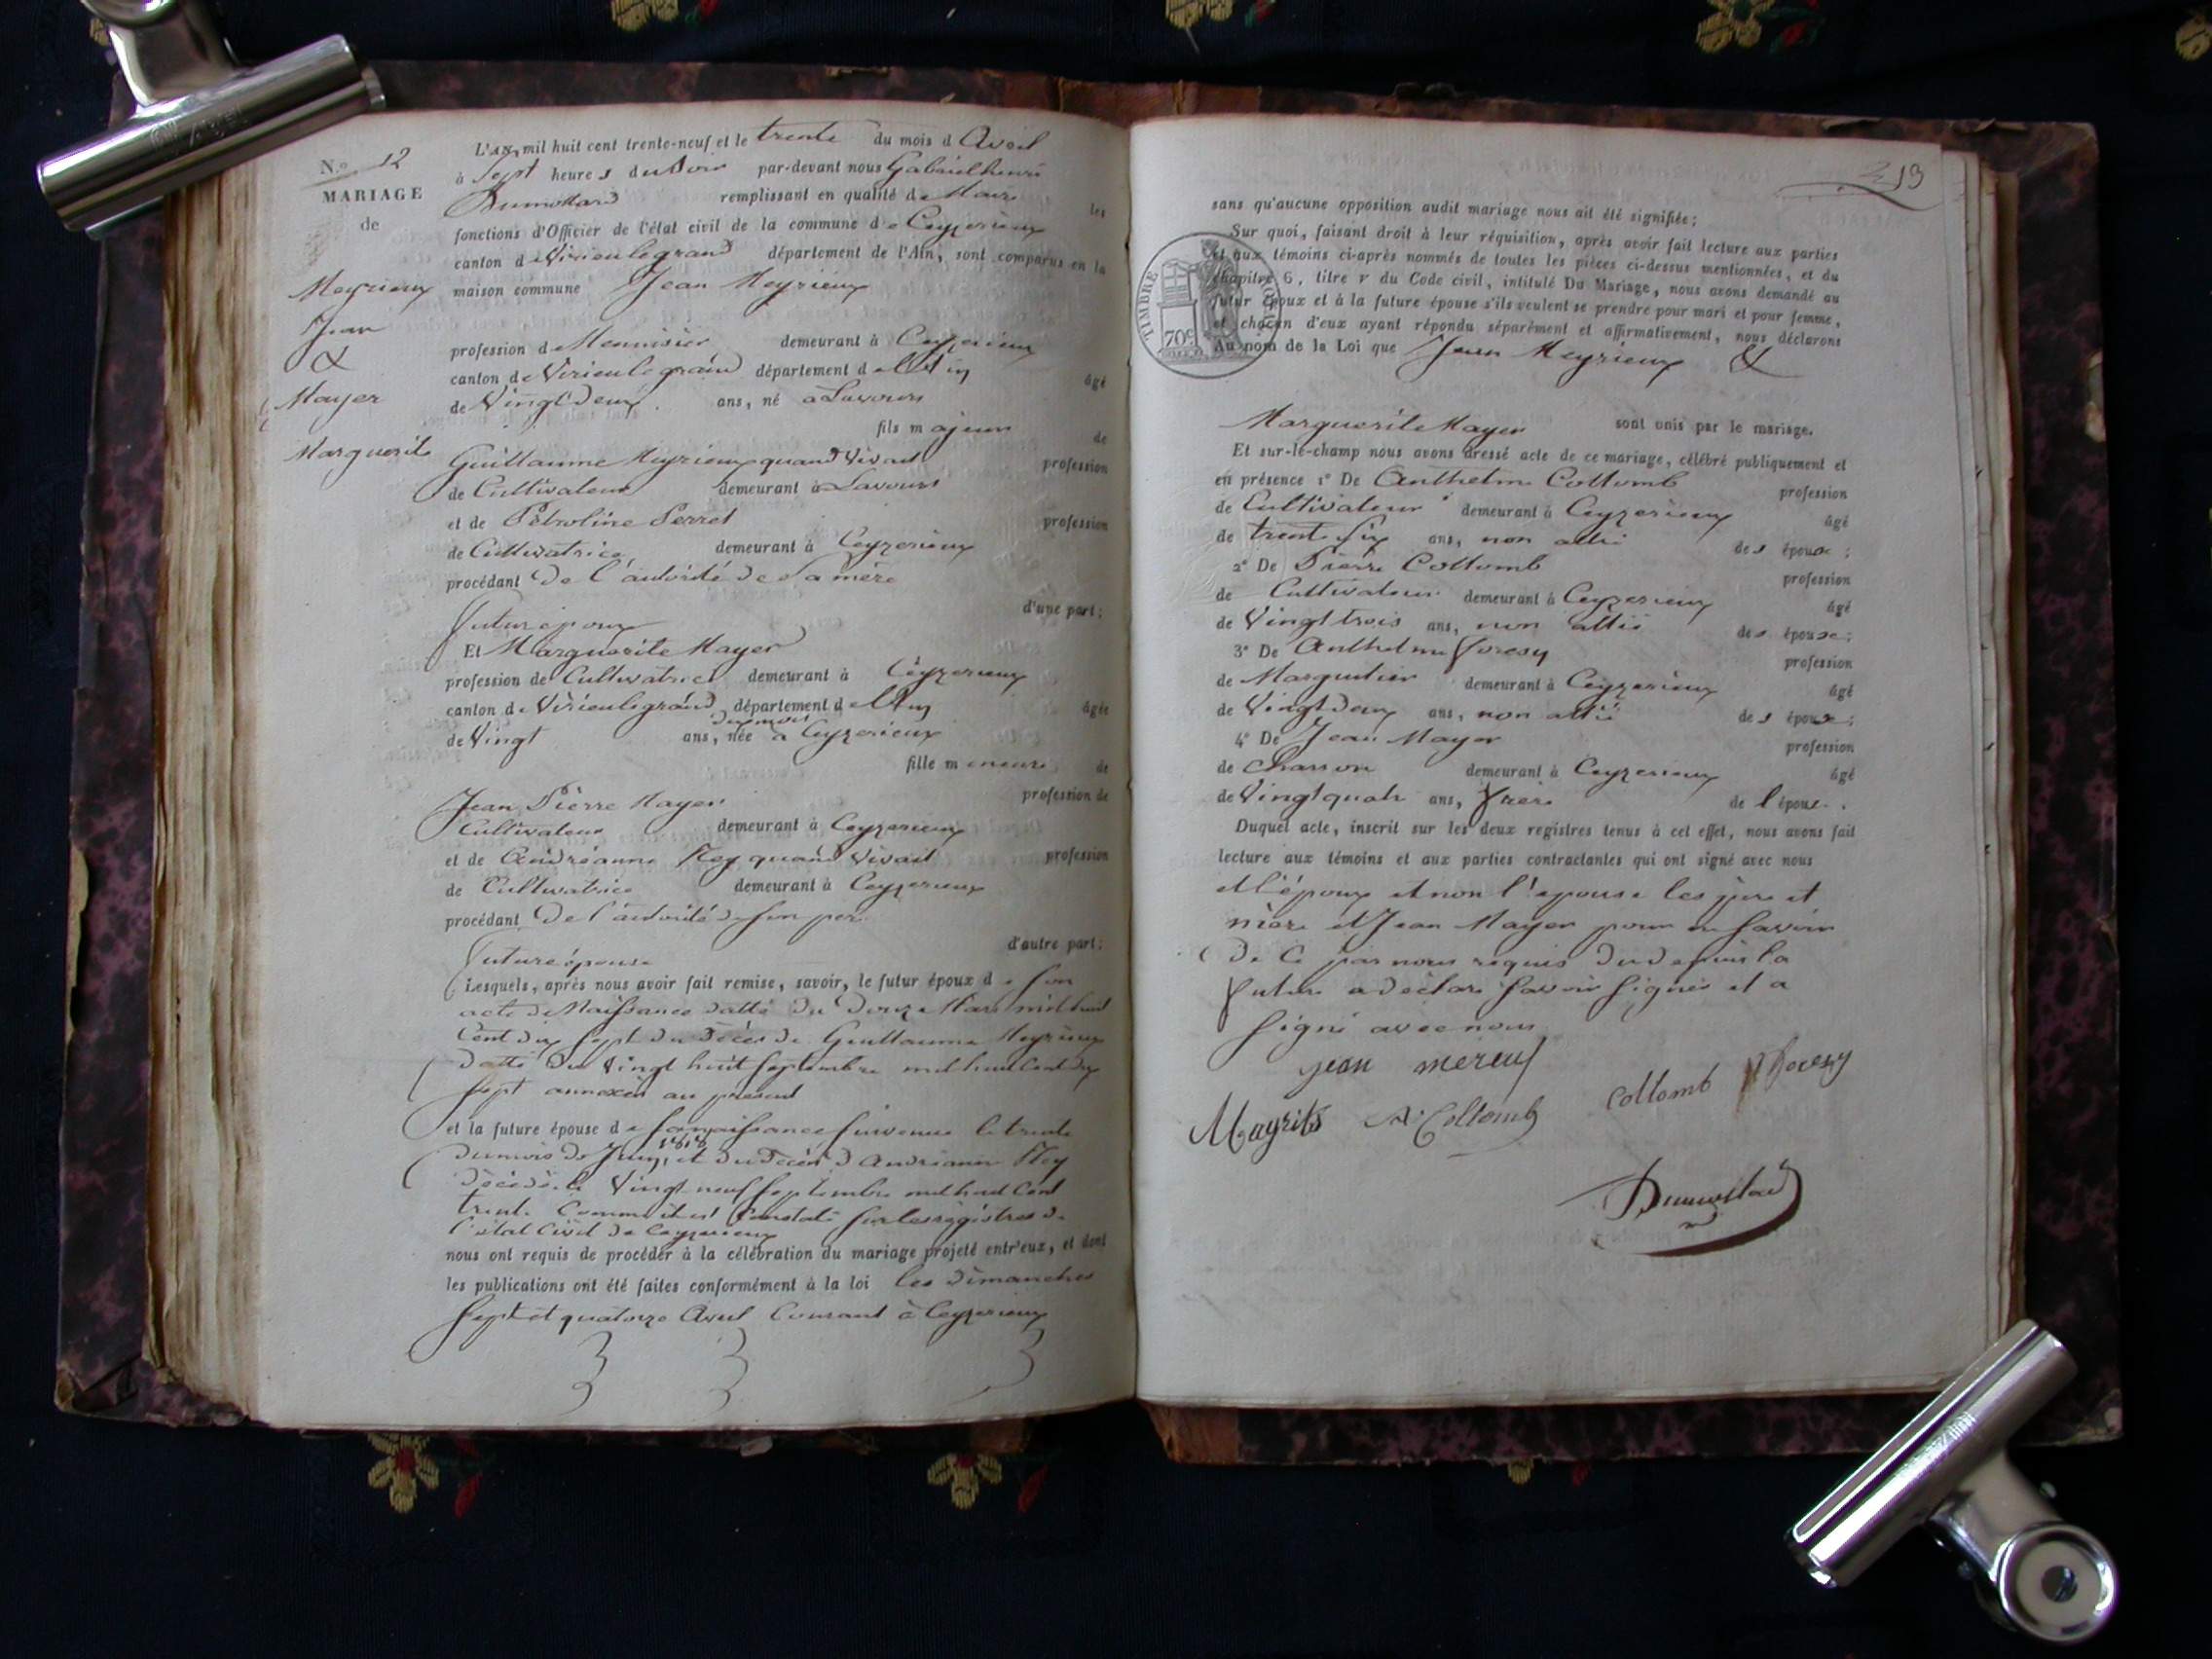 N.o 12
MARIAGE
de
Meyrieux
Jean
&
Mayer
Marguerite
L'an mil huit cent trente-neuf et le trente du mois d Avril
à Sept heures du Soir par-devant nous Gabriel henri
Dumollard remplissant en qualité de Maire les
fonctions d'Officier de l'état civil de la commune de Ceyzerieux
canton de Virieulegrand département de l'Ain, sont comparus en la
maison commune Jean Meyrieux
profession de Menuisier demeurant à Ceyzerieux
canton de Virieulegrand département de l'Ain âgé
de Vingt Deux ans, né à Lavours
fils majeur de
Guillaume Meyrieux quand Vivait profession
de Cultivateur demeurant à Lavours
et de Pétroline Perret profession
de Cultivatrice demeurant à Ceyzerieux
procédant De l'autorité de Sa mère
d'une part;
futur époux
Et Marguerite Mayer
profession de Cultivatrice demeurant à Ceyzerieux
canton de Virieulegrand département de l'Ain âgée
de Vingt ans, dix mois née à Ceyzerieux
fille mineure de
Jean Pierre Mayer profession de
Cultivateur demeurant à Ceyzerieux
et de Andréanne Rey quand Vivait profession
de Cultivatrice demeurant à Ceyzerieux
procédant De l'autorité de Son père
d'autre part;
future épouse
Lesquels, après nous avoir fait remise, savoir, le futur époux de Son
acte de Naissance datté du Douze Mars mil huit
Cent dix Sept du Décès de Guillaume Meyrieux
Datté du Vingt huit Septembre mil huit Cent dix
Sept annexés au présent
et la future épouse de Sa naissance Survenue le trente
du mois de Juin 1818, et du Décès d'Andréanne Rey
Décédée le Vingt neuf Septembre mil huit Cent
trente Comme il est Constaté Sur les régistres de
l'état Civil de Ceyzerieux
nous ont requis de procéder à la célébration du mariage projeté entr'eux, et dont
les publications ont été faites conformément à la loi les Dimanches
Sept et quatorze Avril Courant à Ceyzerieux
213
sans qu'aucune opposition audit mariage nous ait été signifiée;
Sur quoi, faisant droit à leur réquisition, après avoir fait lecture aux parties
et aux témoins ci-après nommés de toutes les pièces ci-dessus mentionnées, et du
chapitre 6, titre v du Code civil, intitulé Du Mariage, nous avons demandé au
futur époux et à la future épouse s'ils veulent se prendre pour mari et pour femme,
et chacun d'eux ayant répondu séparément et affirmativement, nous déclarons
Au nom de la Loi que Jean Meyrieux &
TIMBRE ROYAL
70c
Marguerite Mayer sont unis par le mariage.
Et sur-le-champ nous avons dressé acte de ce mariage, célébré publiquement et
en présence 1º De Anthelme Collomb profession
de Cultivateur demeurant à Ceyzerieux âgé
de trente Six ans, non allié des époux;
2º De Pierre Collomb profession
de Cultivateur demeurant à Ceyzerieux âgé
de Vingt trois ans, non allié des époux;
3º De Anthelme Foresy profession
de Marguilier demeurant à Ceyzerieux âgé
de Vingt Deux ans, non allié des époux;
4º De Jean Mayer profession
de Charron demeurant à Ceyzerieux âgé
de Vingt quatre ans, frère de l'épouse.
Duquel acte, inscrit sur les deux registres tenus à cet effet, nous avons fait
lecture aux témoins et aux parties contractantes qui ont signé avec nous
et l'époux et non l'épouse les père et
mère et Jean Mayer pour ne Savoir
De Ce par nous requis Du depuis la
future a déclaré Savoir Signer et a
Signé avec nous
jean mereux
Mayrits A. Collomb Collomb Foresy
Dumollard